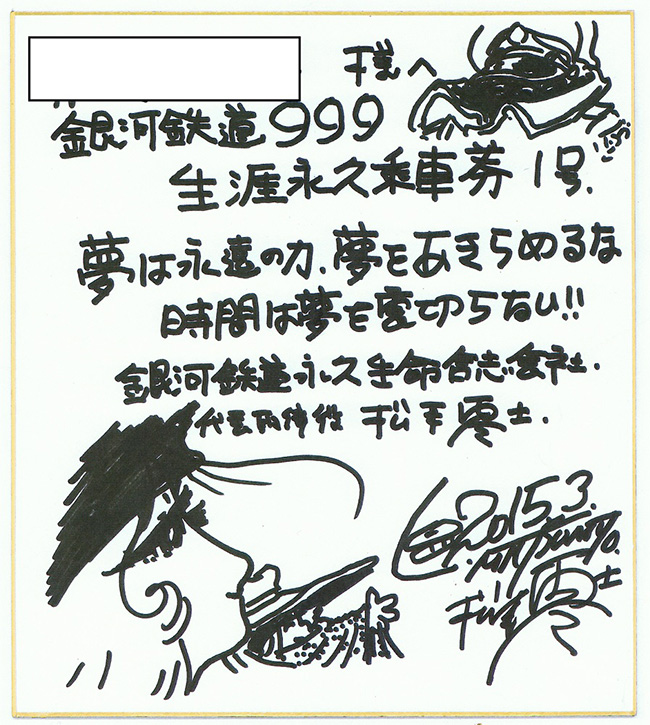 様へ
銀河鉄道999
生涯永久乗車券 1号.
夢は永遠の力、夢をあきらめるな
時間は夢を裏切らない!!
銀河鉄道永久生命合志会社.
代表取締役 松本零士.
2015.3.
松本零士